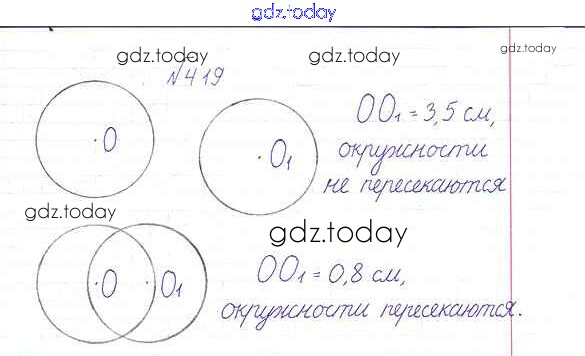 gdz.today
gdz.today gdz.today gdz.today
№419
O O₁ OO₁ = 3,5 см,
окружности
не пересекаются
gdz.today
gdz.today
O O₁ OO₁ = 0,8 см,
окружности пересекаются.